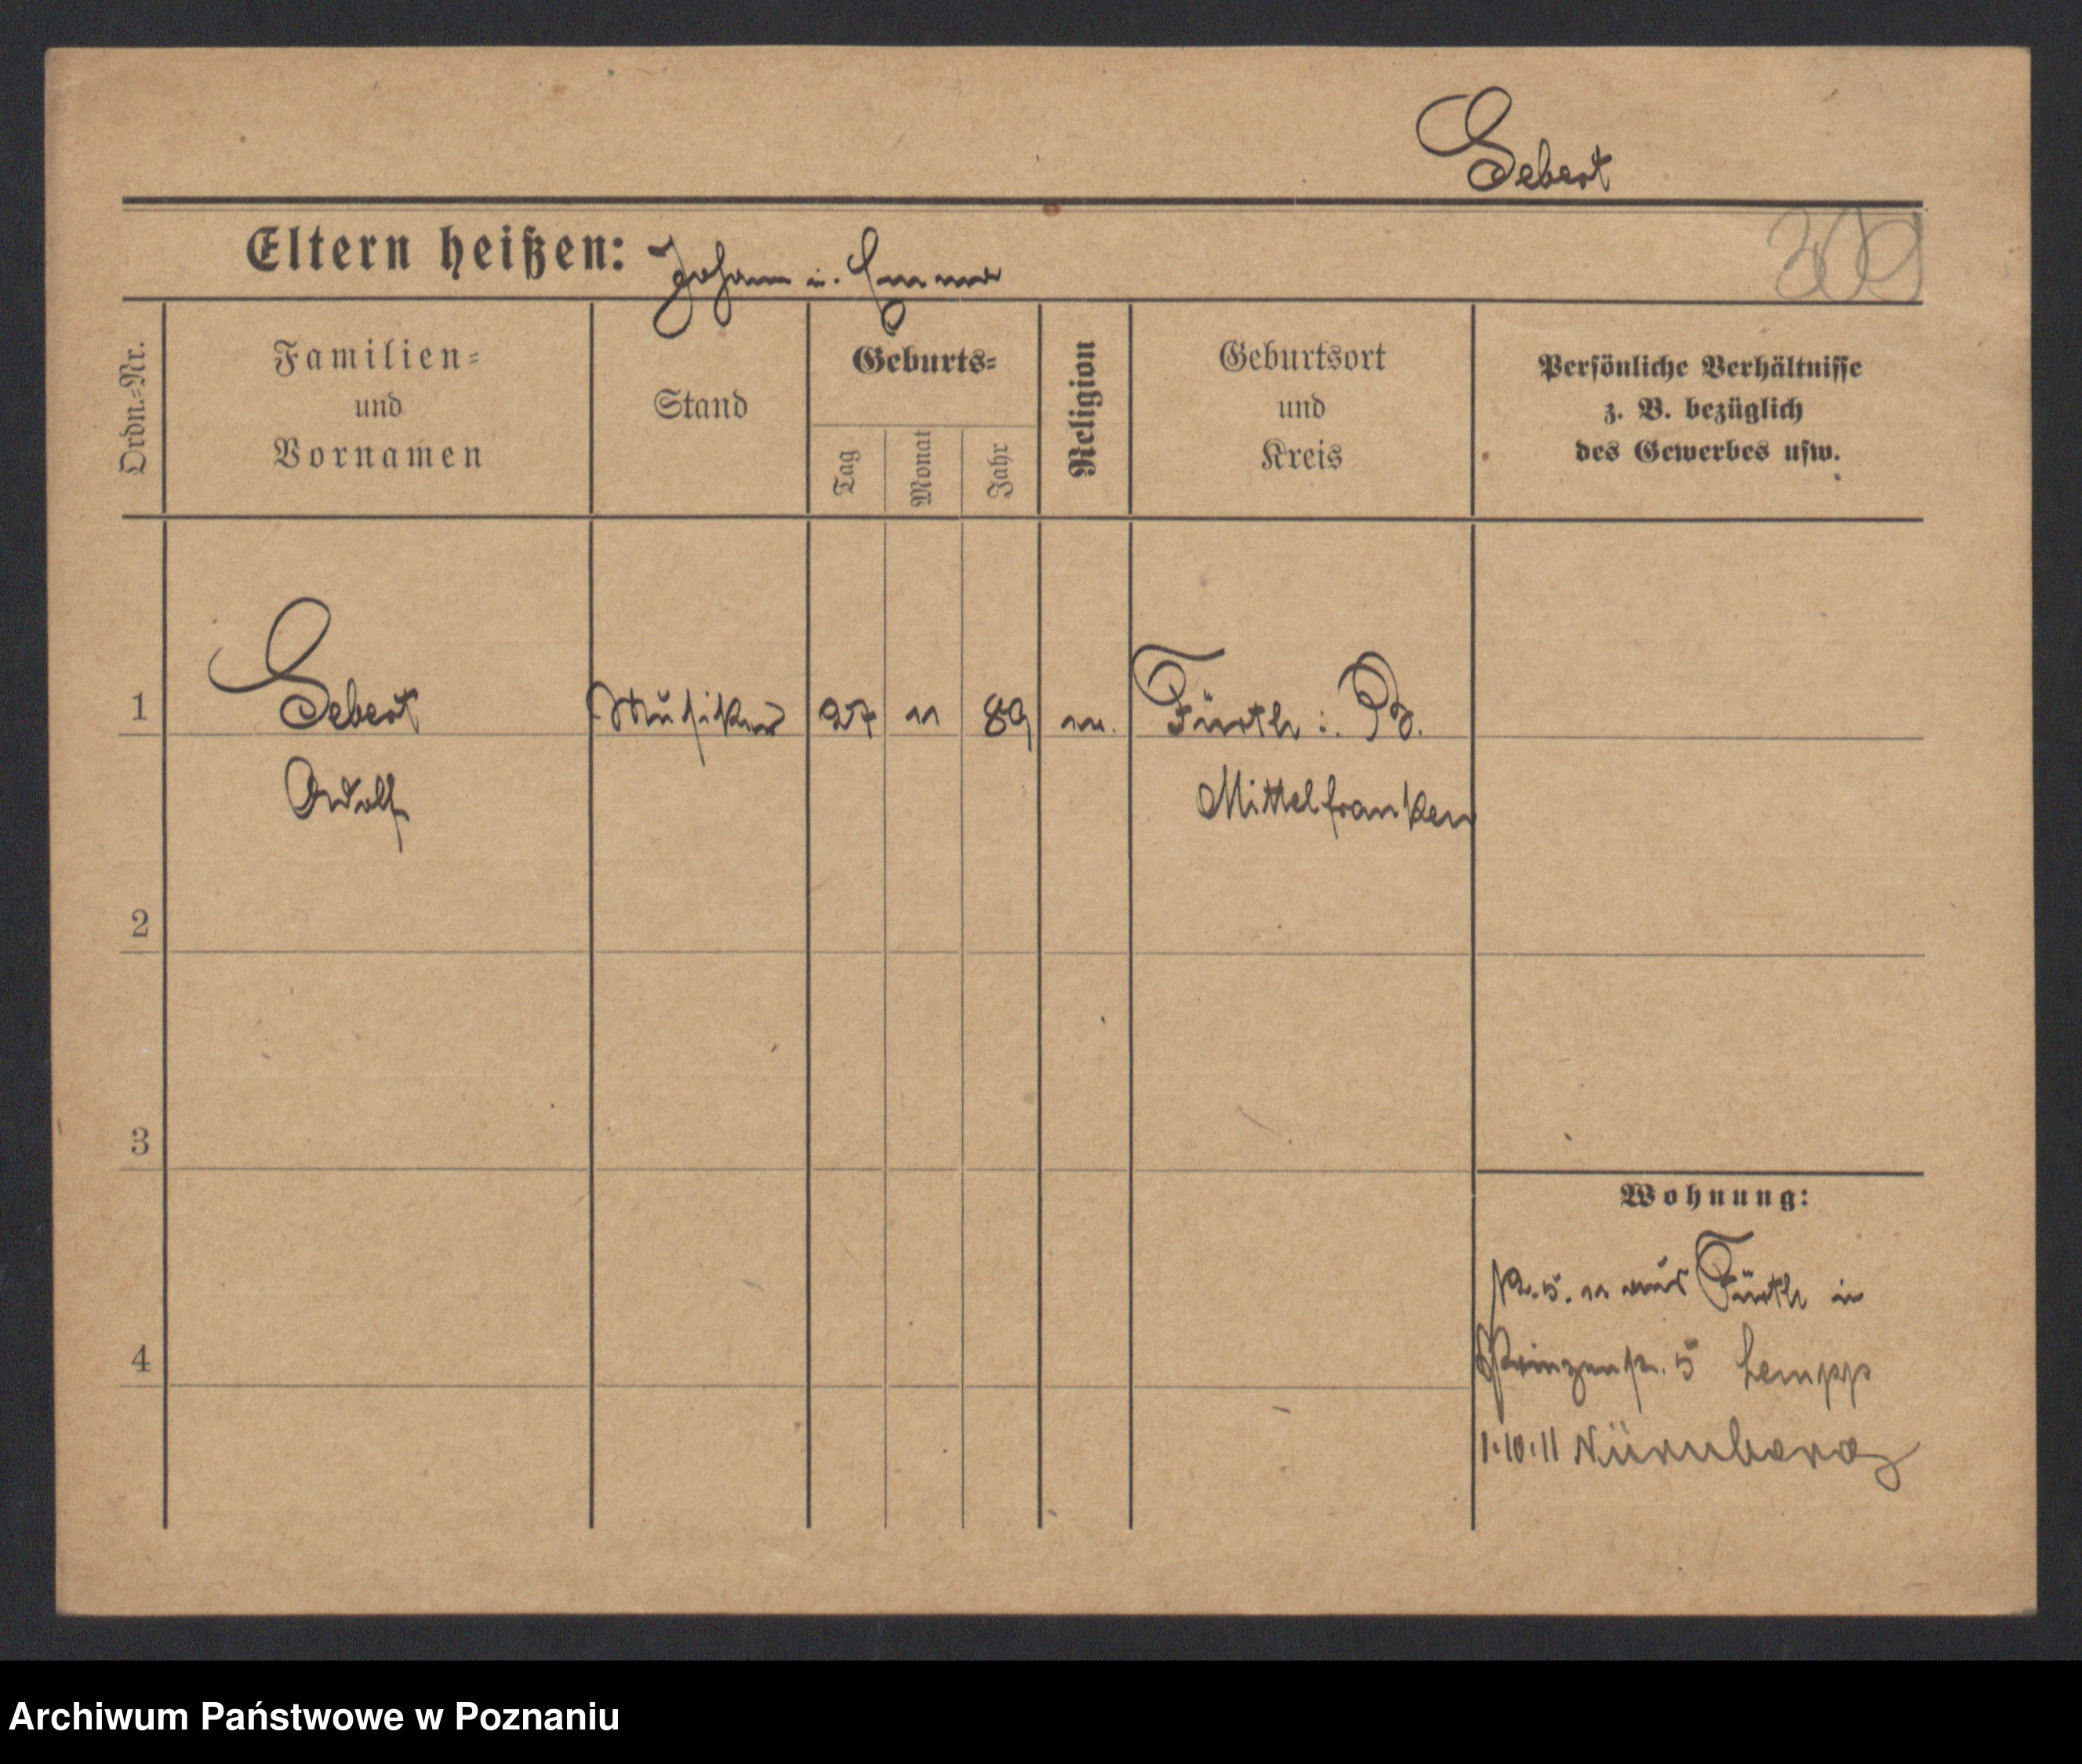 Gebert
Eltern heißen: Johann u. Emma
309
Ordn.-Nr.
Familien-
und
Vornamen
Stand
Geburts-
Tag
Monat
Jahr
Religion
Geburtsort
und
Kreis
Persönliche Verhältnisse
z. B. bezüglich
des Gewerbes usw.
1 Gebert Musiker 27 11 89 Fürth i. B.
Adolf Mittelfranken
2
3
4
Wohnung:
5. 11 aus Fürth in
Prinzenstr. 5 Lempp
1.10.11 Nürnberg
Archiwum Państwowe w Poznaniu